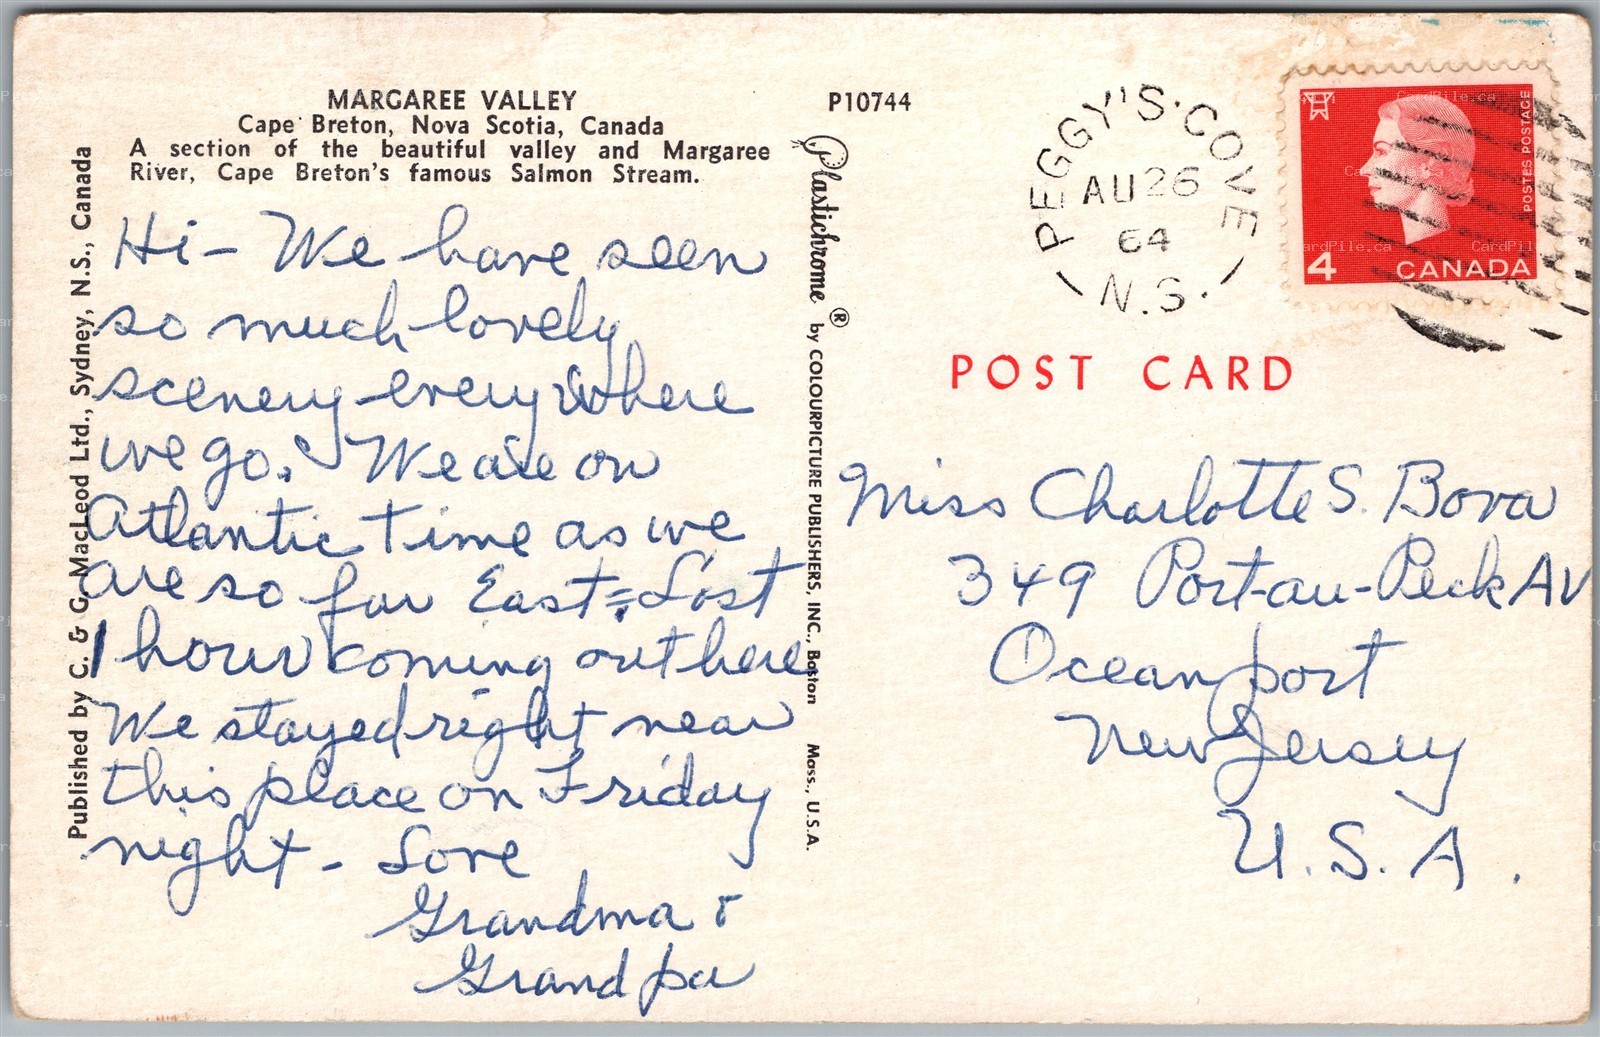 MARGAREE VALLEY
Cape Breton, Nova Scotia, Canada
A section of the beautiful valley and Margaree
River, Cape Breton's famous Salmon Stream.
P10744
Published by C. & G. MacLeod Ltd., Sydney, N.S., Canada
Plastichrome ® by COLOURPICTURE PUBLISHERS, INC., Boston Mass., U.S.A.
Hi - We have seen
so much lovely
scenery everywhere
we go. We are on
Atlantic Time as we
are so far East = Lost
1 hour coming out here
We stayed right near
this place on Friday
night - Love
Grandma &
Grandpa
PEGGY'S COVE
AU 26
64
N.S.
POSTES POSTAGE
4 CANADA
CardPile.ca
POST CARD
Miss Charlotte S. Bova
349 Port-au-Peck AV
Oceanport
New Jersey
U.S.A.